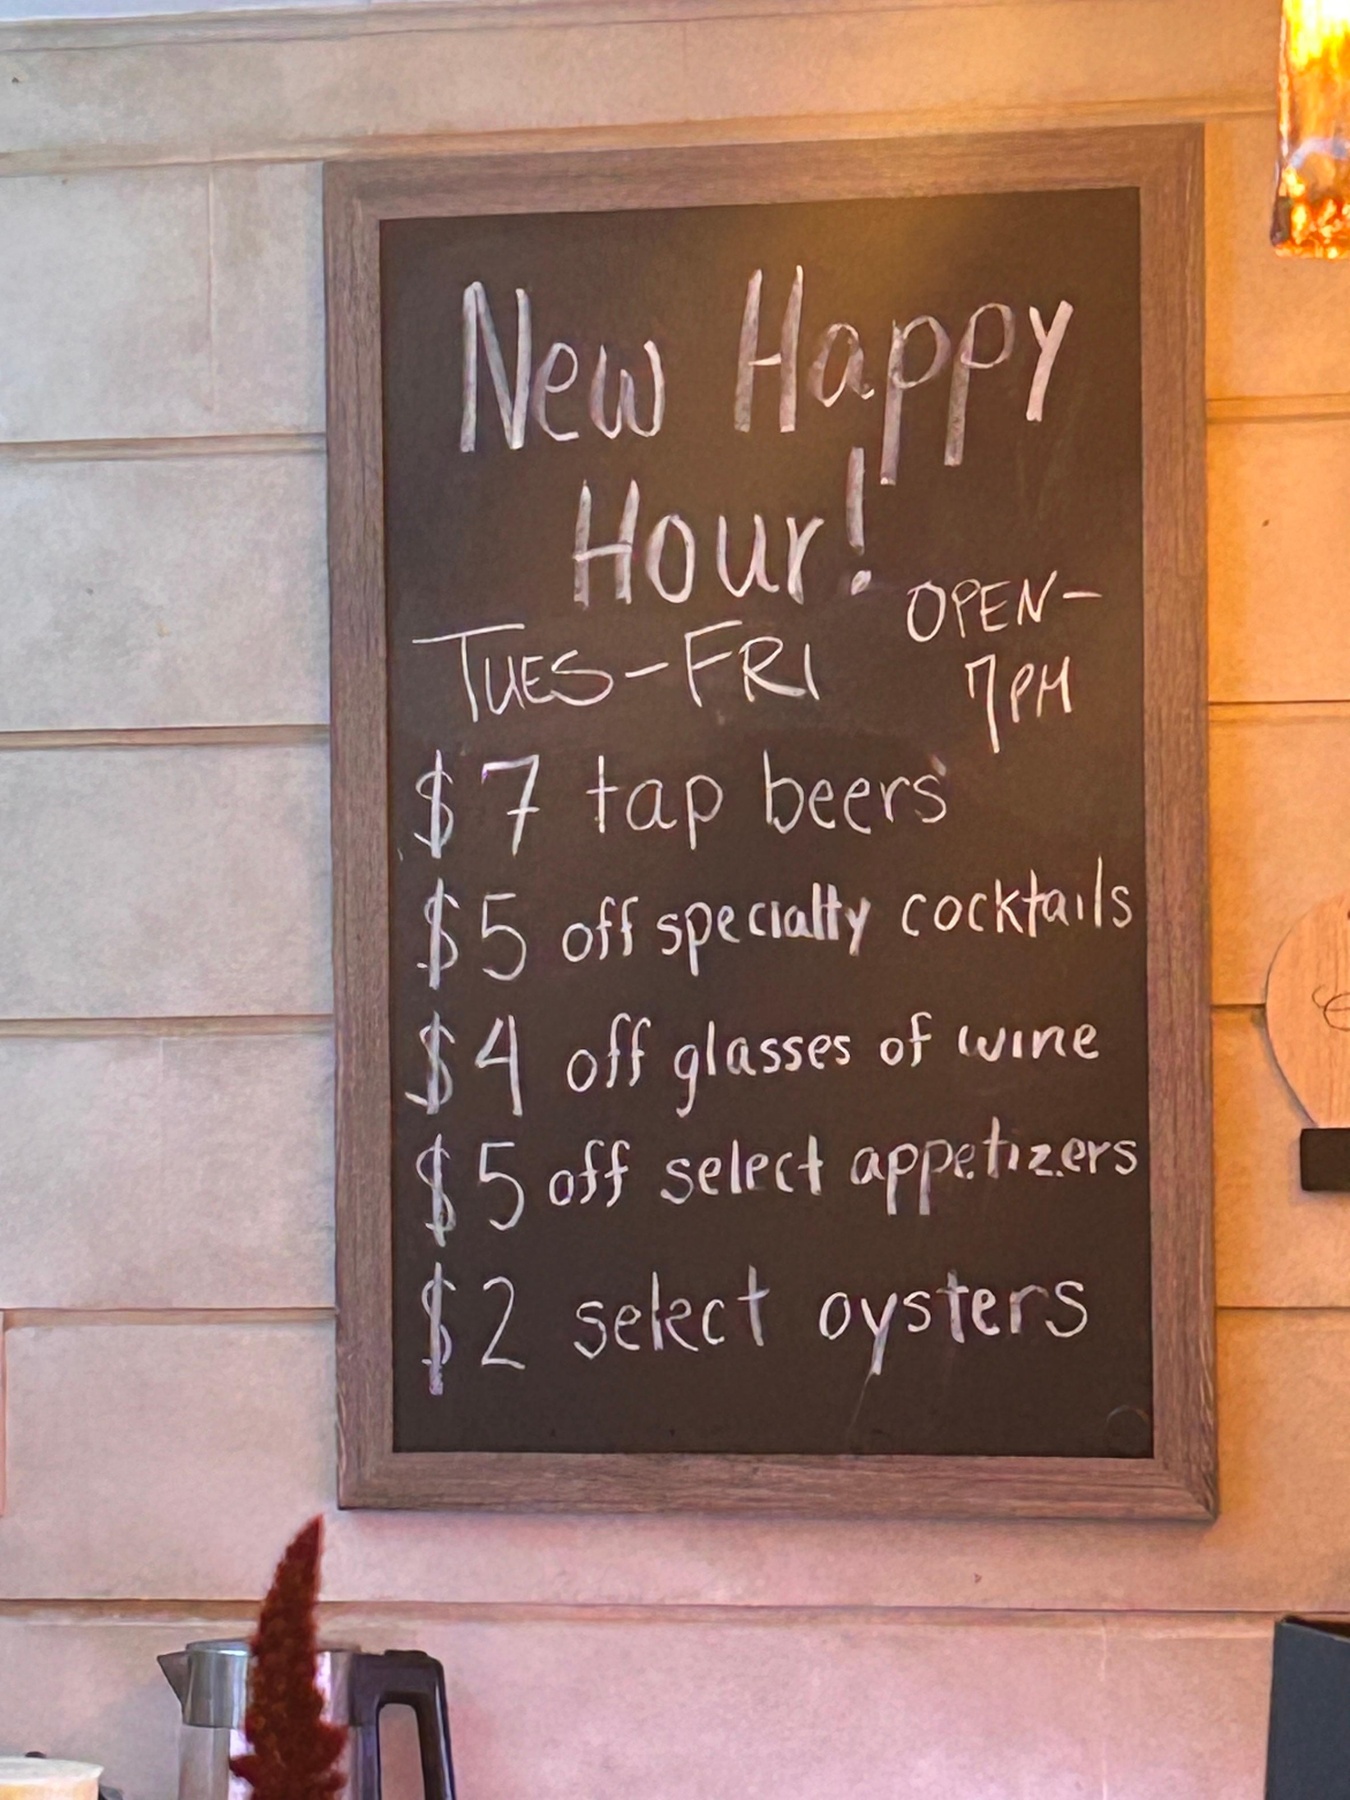 New Happy
Hour!
TUES-FRI OPEN-
7PM
$7 tap beers
$5 off specialty cocktails
$4 off glasses of wine
$5 off select appetizers
$2 select oysters